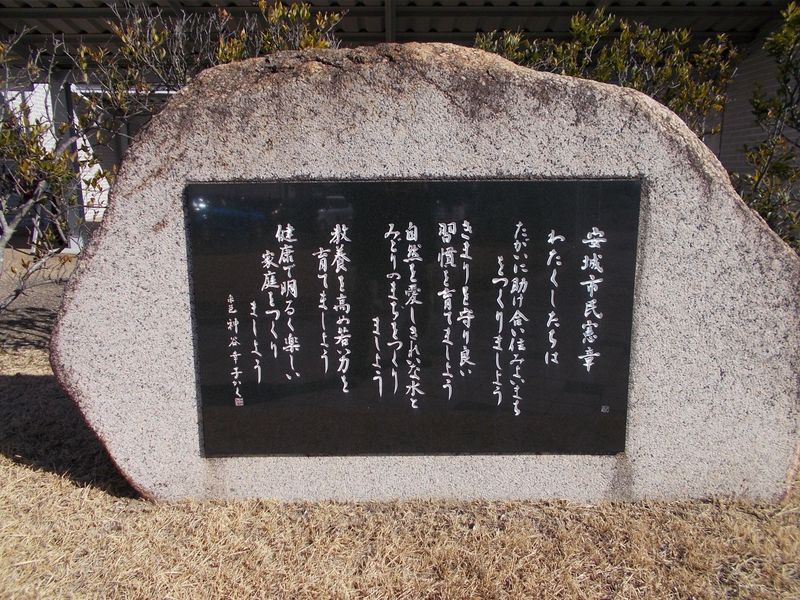 安城市民憲章
わたくしたちは
たがいに助け合い住みよいまち
をつくりましょう
きまりを守り良い
習慣を育てましょう
自然を愛しきれいな水と
みどりのまちをつくり
ましょう
教養を高め若い力を
育てましょう
健康で明るく楽しい
家庭をつくり
ましょう
神谷幸子かく